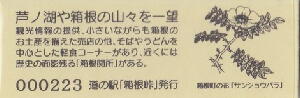 芦ノ湖や箱根の山々を一望
観光情報の提供、小さいながらも箱根の
お土産を揃えた売店の他、そばやうどんを
中心とした軽食コーナーがあり、近くには
歴史の面影残る「箱根関所」がある。
000223 道の駅「箱根峠」発行
箱根町の花「サンショウバラ」